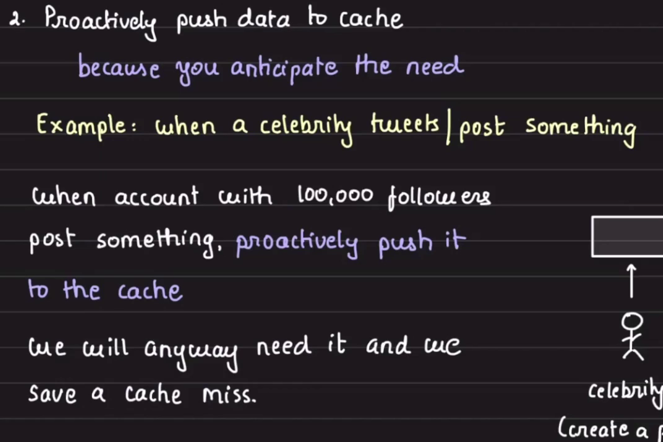 2. Proactively push data to cache
because you anticipate the need
Example: when a celebrity tweets | post something
when account with 100,000 followers
post something, proactively push it
to the cache
we will anyway need it and we
save a cache miss.
celebrity
(create a